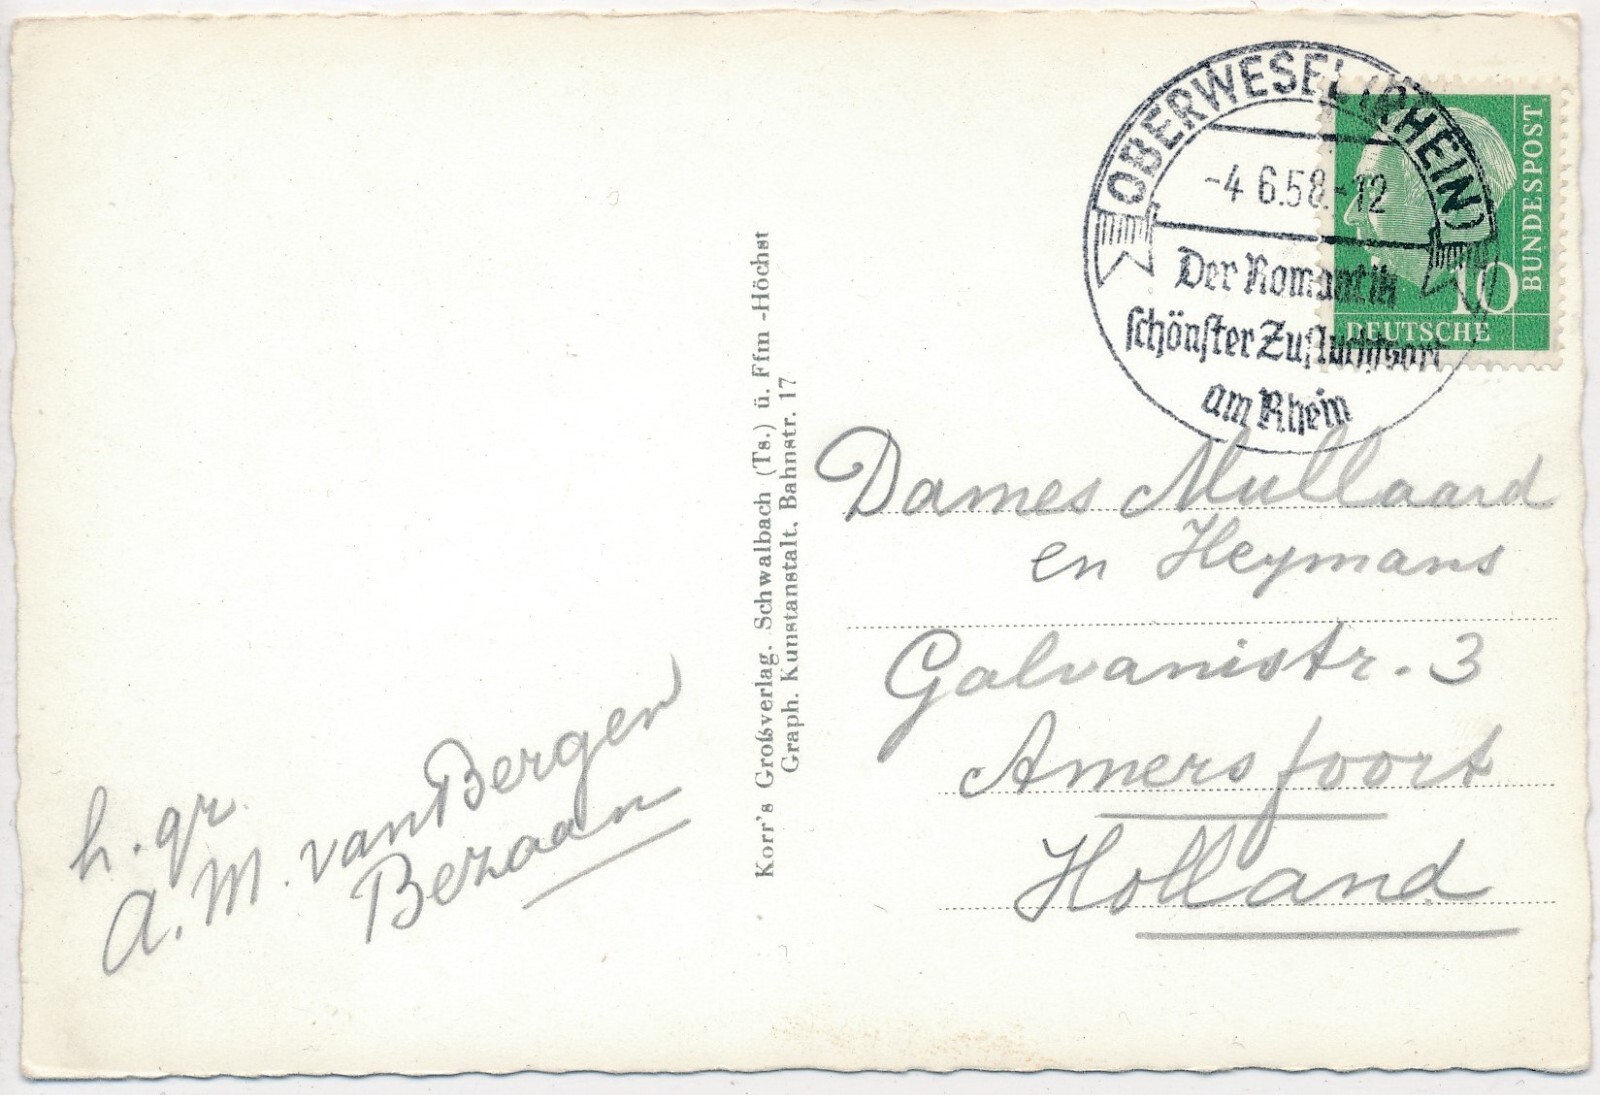 OBERWESEL (RHEIN)
-4 6.58.-12
Der Romantik
schönster Zufluchtsort
am Rhein
BUNDESPOST
10
DEUTSCHE
Korr's Großverlag. Schwalbach (Ts.) ü. Ffm -Höchst
Graph. Kunstanstalt, Bahnstr. 17
Dames Mullaard
en Heymans
Galvanistr. 3
Amersfoort
Holland
h. gr.
A. M. van Bergen
Bezaan